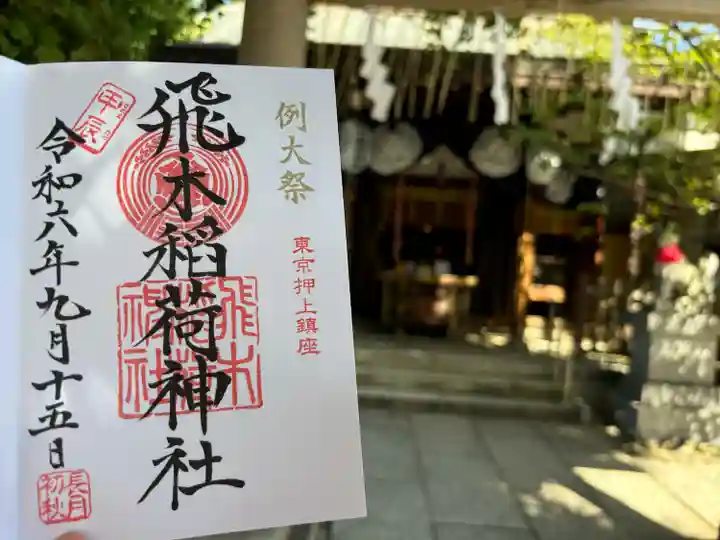 例大祭
東京押上鎮座
飛木稲荷神社
飛木稲荷神社
甲辰
令和六年九月十五日
長月
初秋